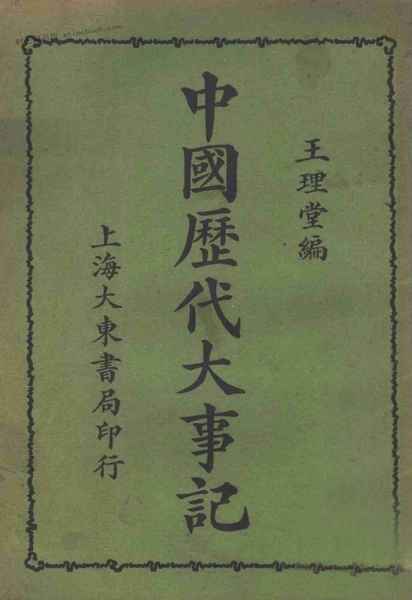 王理堂編
中國歷代大事記
上海大東書局印行